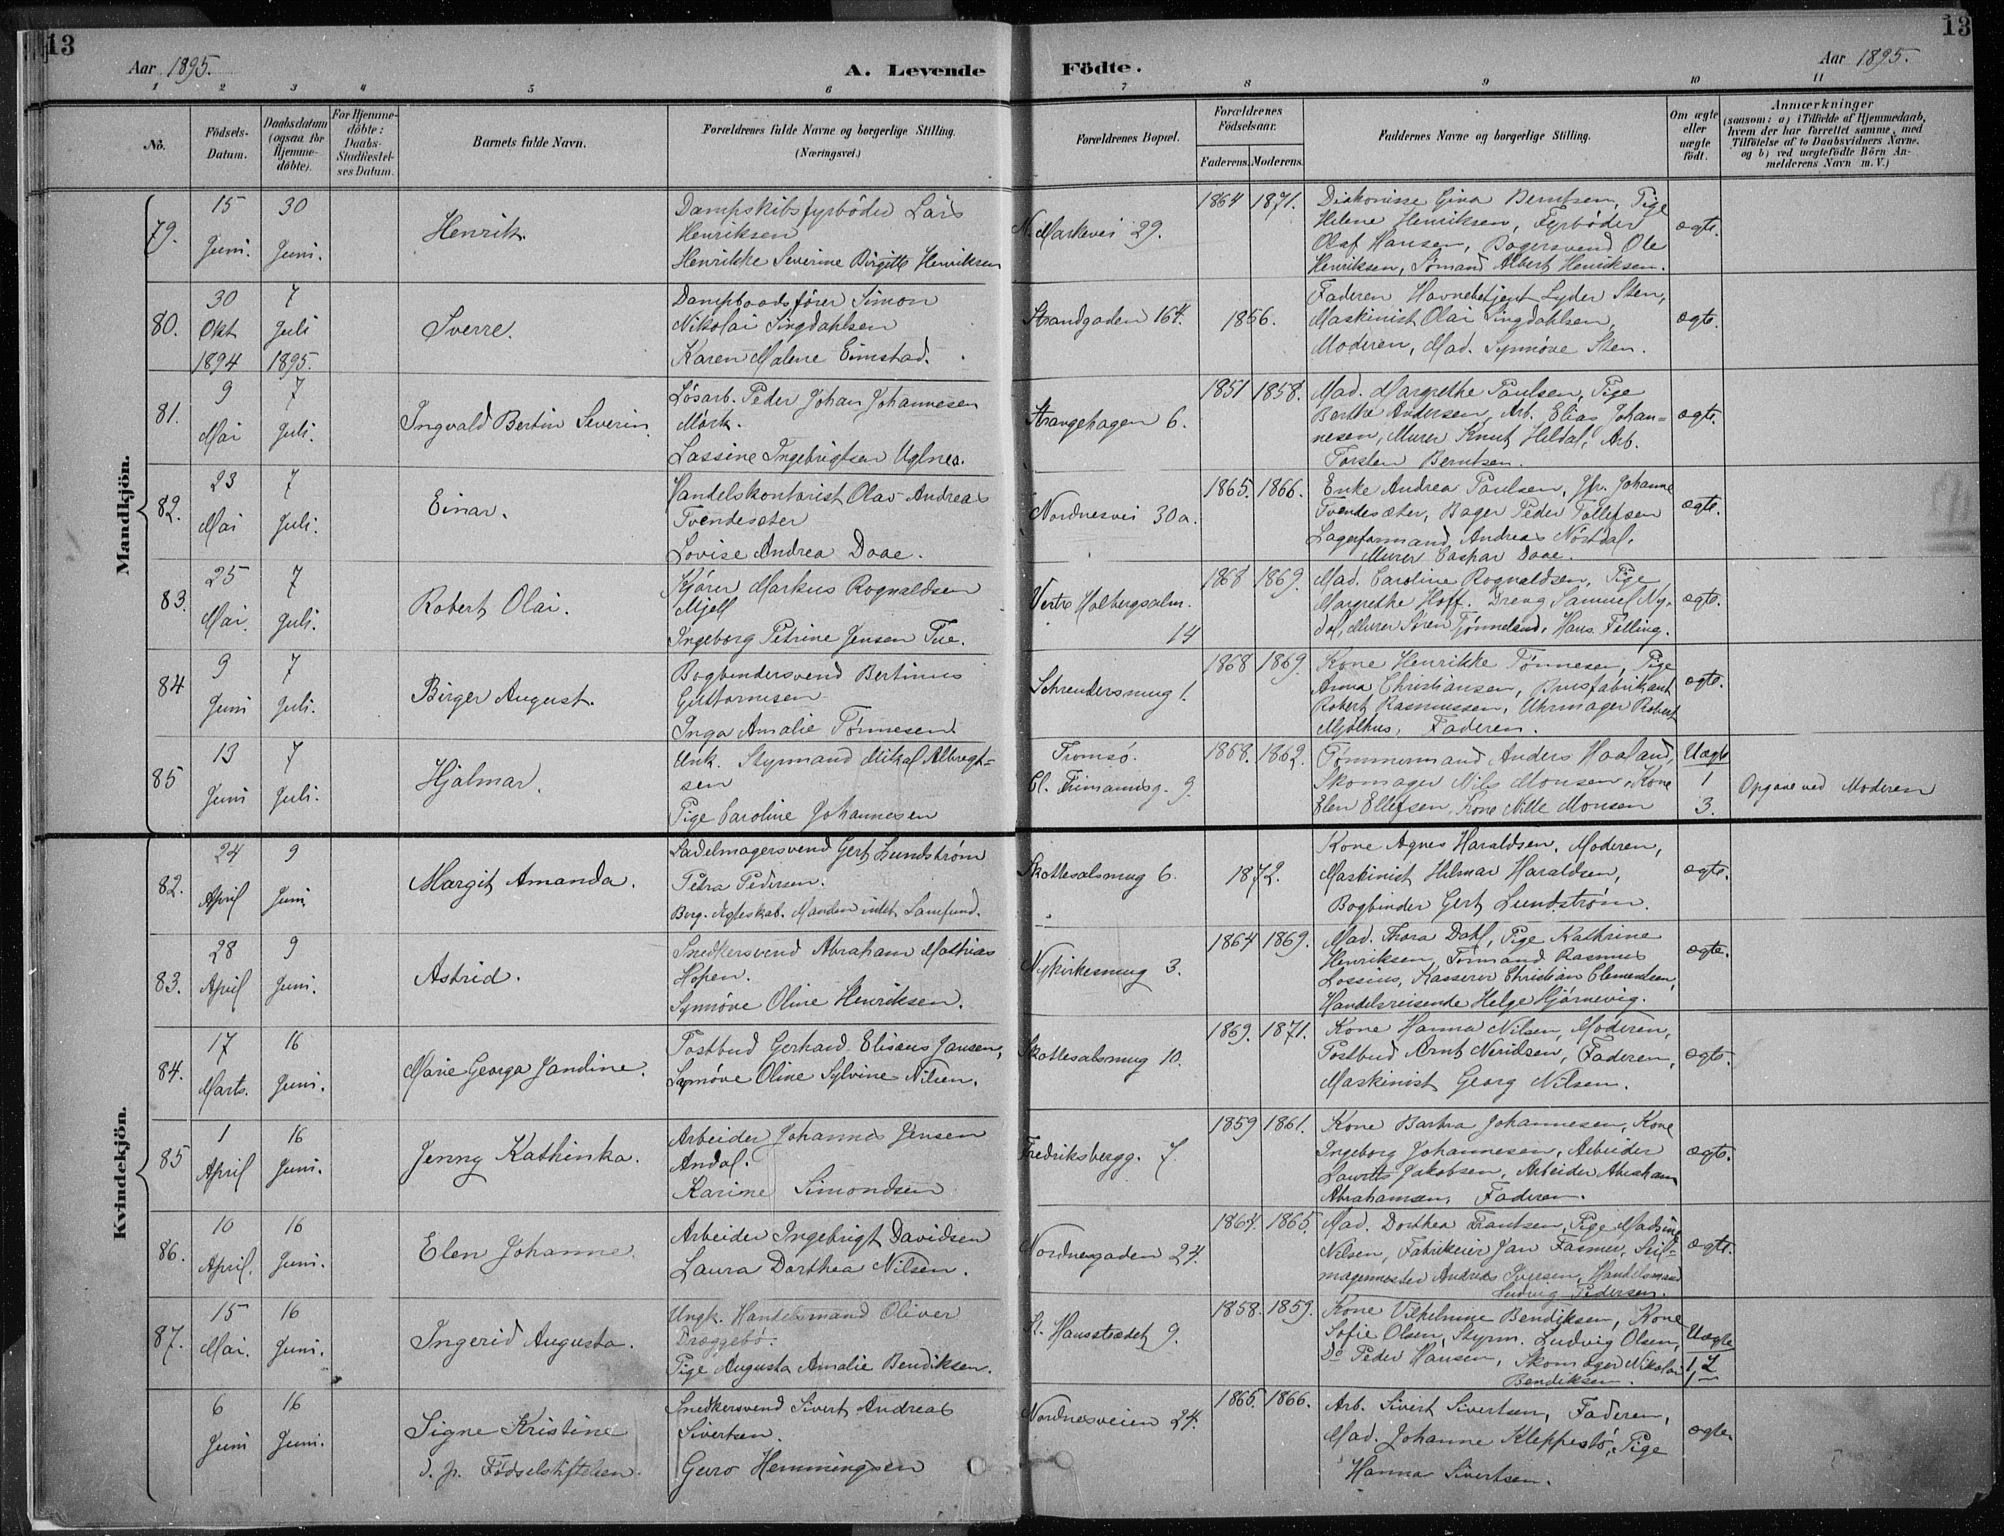 13
13
Aar 1895.
A. Levende
Födte.
Aar 1895.
1 2 3 4 5 6 7 8 9 10 11
No.
Födsels-Datum.
Daabsdatum (ogsaa for Hjemme-döbte).
For Hjemme-döbte: Daabs-Stadfæstel-ses Datum.
Barnets fulde Navn.
Forældrenes fulde Navne og borgerlige Stilling.
(Næringsvei.)
Forældrenes Bopæl.
Forældrenes Födselsaar.
Faderens. Moderens.
Faddernes Navne og borgerlige Stilling.
Om ægte eller uægte födt.
Anmærkninger
(saasom: a) i Tilfælde af Hjemmedaab,
hvem der har forrettet samme, med
Tilföielse af to Daabsvidners Navne,
og b) ved uægtefödte Börn An-
melderens Navn m. V.)
Mandkjön.
79.
15 Juni.
30 Juni.
Henrik.
Dampskibsfyrbøder Lars
Henriksen
Henrikke Severine Birgitte Henriksen
N. Markevei 29.
1864 1871.
Diakonisse Gina Berntsen, Pige
Helene Henriksen, Fyrbøder
Olaf Hansen, Bagersvend Ole
Henriksen, Sømand Albert Henriksen.
ægte.
80.
30 Okt 1894
7 Juli 1895.
Sverre.
Dampbaadsfører Simon
Nikolai Lingdahlsen
Karen Malene Eimstad.
Strandgaden 164.
1856.
Faderen Havnebetjent Lyder Sten,
Maskinist Olai Lingdahlsen,
Moderen, Mad. Synnøve Sten.
ægte.
81.
9 Mai
7 Juli.
Ingvald Bertin Severin.
Løsarb. Peder Johan Johannesen
Mørk.
Lassine Ingebrigtsen Uglnes.
Strangehagen 6.
1851 1858.
Mad. Margrethe Paulsen, Pige
Berthe Andersen, Arb. Elias Johan-
nesen, Murer Knut Hildal, Arb.
Torsten Berntsen.
ægte.
82.
23 Mai
7 Juli.
Einar.
Handelskontorist Olav Andreas
Tvendesæter
Lovise Andrea Daae.
Nordnesvei 30a.
1865. 1866.
Enke Andrea Paulsen, Jfr. Johanne
Tvendesæter, Bager Peder Tollefsen
Lagerformand Andreas Nøstdal,
Murer Caspar Daae.
ægte.
83.
25 Mai.
7 Juli.
Robert Olai.
Kjører Markus Rognaldsen
Mjell
Ingeborg Petrine Jensen Tue.
Vestre Holbergsalm.
14
1868 1869.
Mad. Caroline Rognaldsen, Pige
Margrethe Hoff. Dreng Samuel Ny-
dal, Murer Søren Tjønneland, Hans Følling.
ægte.
84
9 Juni
7 Juli.
Birger August.
Bogbindersvend Bertinus
Guttormsen
Inga Amalie Tønnesen
Schreudersmug 1.
1868 1869.
Kone Henrikke Tønnesen, Pige
Anna Christiansen, Brusfabrikant
Robert Rasmussen, Uhrmager Robert
Mjølhus, Faderen.
ægte.
85
13 Juni
7 Juli.
Hjalmar.
Unk. Styrmand Mikal Albregt-
sen
Pige Caroline Johannesen
Tromsø.
Cl. Fimannsg. 9.
1868. 1862.
Tømmermand Anders Haaland,
Skomager Nils Monsen, Kone
Elen Ellefsen, Kone Nille Monsen
Uægte
1
3.
Opgave ved Moderen
Kvindekjön.
82.
24 April
9 Juni
Margit Amanda.
Sadelmagersvend Gert Lundstrøm
Petra Pedersen.
Borg. Ægteskab. Manden intet Samfund.
Skottesalsmug 6.
1872.
Kone Agnes Haraldsen, Moderen,
Maskinist Hilmar Haraldsen,
Bogbinder Gert Lundstrøm.
ægte.
83.
28 April
9 Juni.
Astrid.
Snedkersvend Abraham Mathias
Hopen.
Synnøve Oline Henriksen.
Nykirkesmug 3.
1864 1869.
Mad. Thora Dahl, Pige Kathrine
Henriksen, Formand Rasmus
Lossius, Kasserer Christian Clementsen,
Handelsreisende Helge Hjørnevig.
ægte.
84.
17 Marts.
16 Juni.
Marie Georga Jandine.
Postbud Gerhard Elisæus Jansen,
Synnøve Oline Sylvine Nilsen.
Skottesalsmug 10.
1869. 1871.
Kone Hanna Nilsen, Moderen,
Postbud Arnt Neridsen, Faderen,
Maskinist Georg Nilsen.
ægte.
85
1 April
16 Juni.
Jenny Kathinka.
Arbeider Johannes Jensen
Andal.
Karine Simondsen
Fredriksbergg. 7
1859 1861.
Kone Bartra Johannesen, Kone
Ingeborg Johannesen, Arbeider
Laurits Jakobsen, Arbeider Abraham
Abrahamsen, Faderen.
ægte.
86.
10 April.
16 Juni.
Elen Johanne.
Arbeider Ingebrigt Davidsen
Laura Dorthea Nilsen.
Nordnesgaden 24.
1864. 1865.
Mad. Dorthea Frantsen, Pige Madsine
Nilsen, Fabrikeier Jan Fasmer, Seil-
magermester Andreas Iversen, Handelsmand
Ludvig Pedersen.
ægte.
87.
15 Mai.
16 Juni.
Ingerid Augusta.
Ungk. Handelsmand Oliver
Dræggebø.
Pige Augusta Amalie Bendiksen.
St. Hansstrædet 9.
1858. 1859.
Kone Vilhelmine Bendiksen, Kone
Sofie Olsen, Styrm. Ludvig Olsen,
do Peder Hansen, Skomager Nikolai
Bendiksen.
Uægte
6 Juni
16 Juni.
Signe Kristine
d. p. Fødselstiftelsen.
Snedkersvend Sivert Andreas
Sivertsen.
Guro Hemmingsen
Nordnesveien 24.
1865. 1866.
Arb. Sivert Sivertsen, Faderen,
Mad. Johanne Kleppestø, Pige
Hanna Sivertsen.
ægte